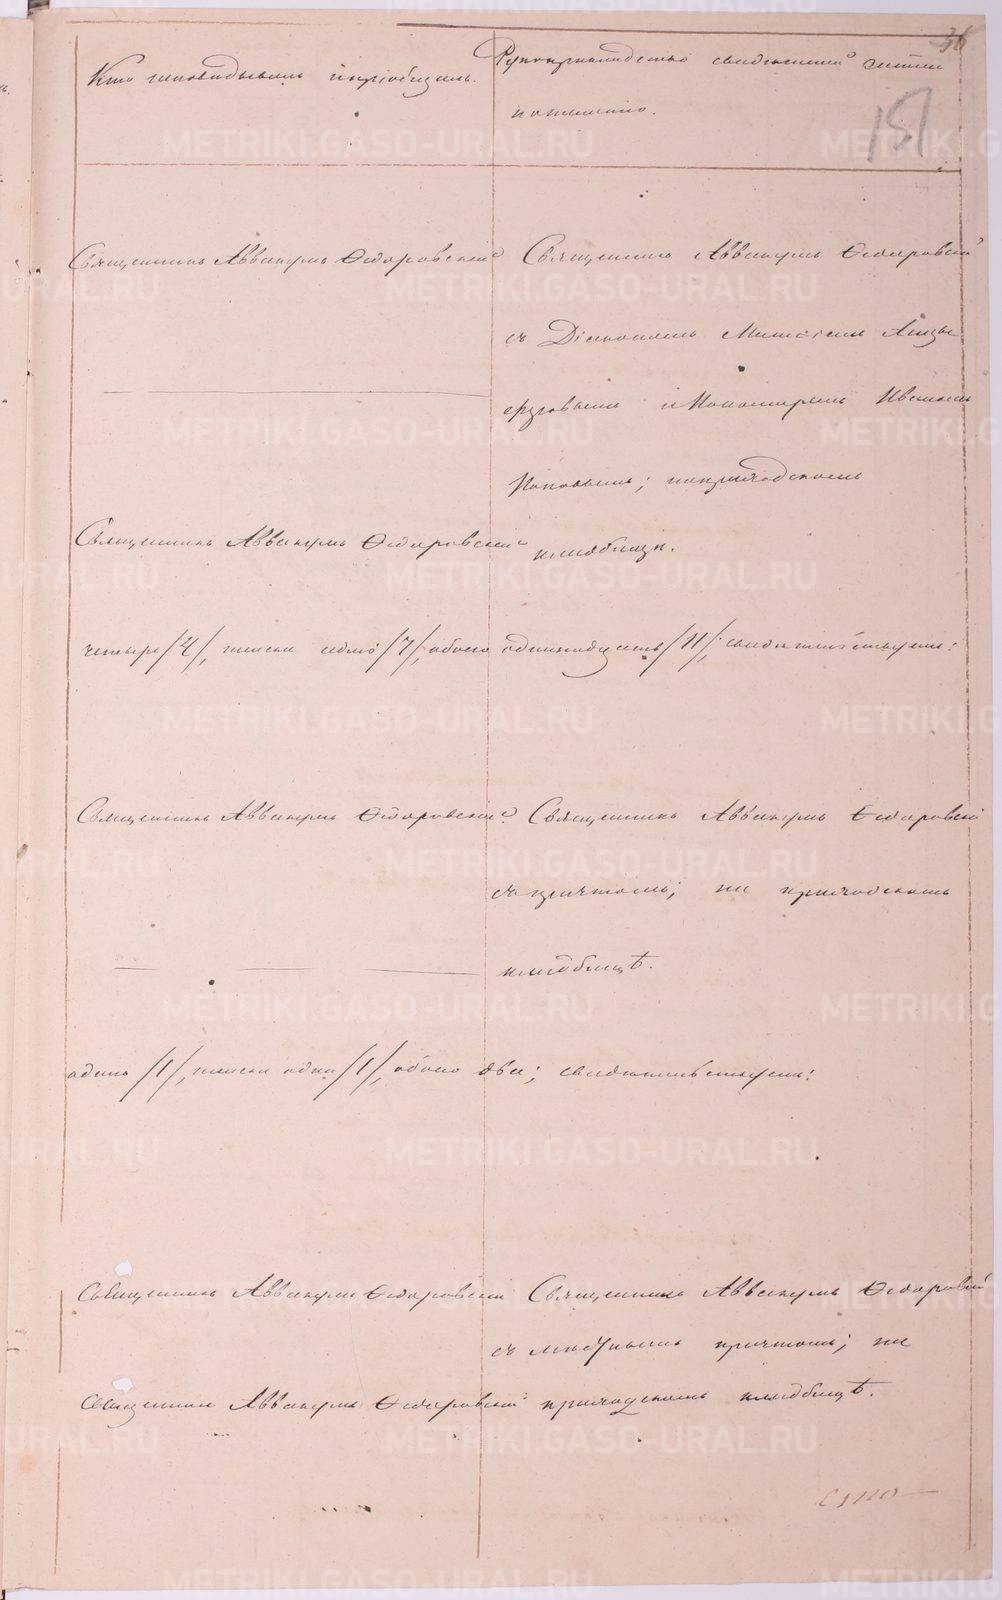 36
151
Кто исповѣдывалъ и пріобщалъ.
погребеніе.
Священникъ Аввакумъ Ѳедоровскій
Священникъ Аввакумъ Ѳедоровскій
съ Діакономъ
и Пономаремъ Иваномъ
Поповымъ; на приходскомъ
кладбищѣ.
Священникъ Аввакумъ Ѳедоровскій
четыре /4/, женска семь /7/, обоего одиннадцать /11/; свидѣтельствуемъ:
Священникъ Аввакумъ Ѳедоровскій
Священникъ Аввакумъ Ѳедоровскій
съ причтомъ; на приходскомъ
кладбищѣ.
одинъ /1/, женска одна /1/, обоего два; свидѣтельствуемъ:
Священникъ Аввакумъ Ѳедоровскій
Священникъ Аввакумъ Ѳедоровскій
съ причтомъ; на
приходскомъ кладбищѣ.
Священникъ Аввакумъ Ѳедоровскій
METRIKI.GASO-URAL.RU